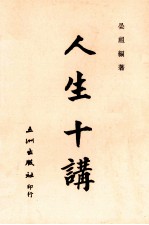 著
人生十講
五洲出版社印行